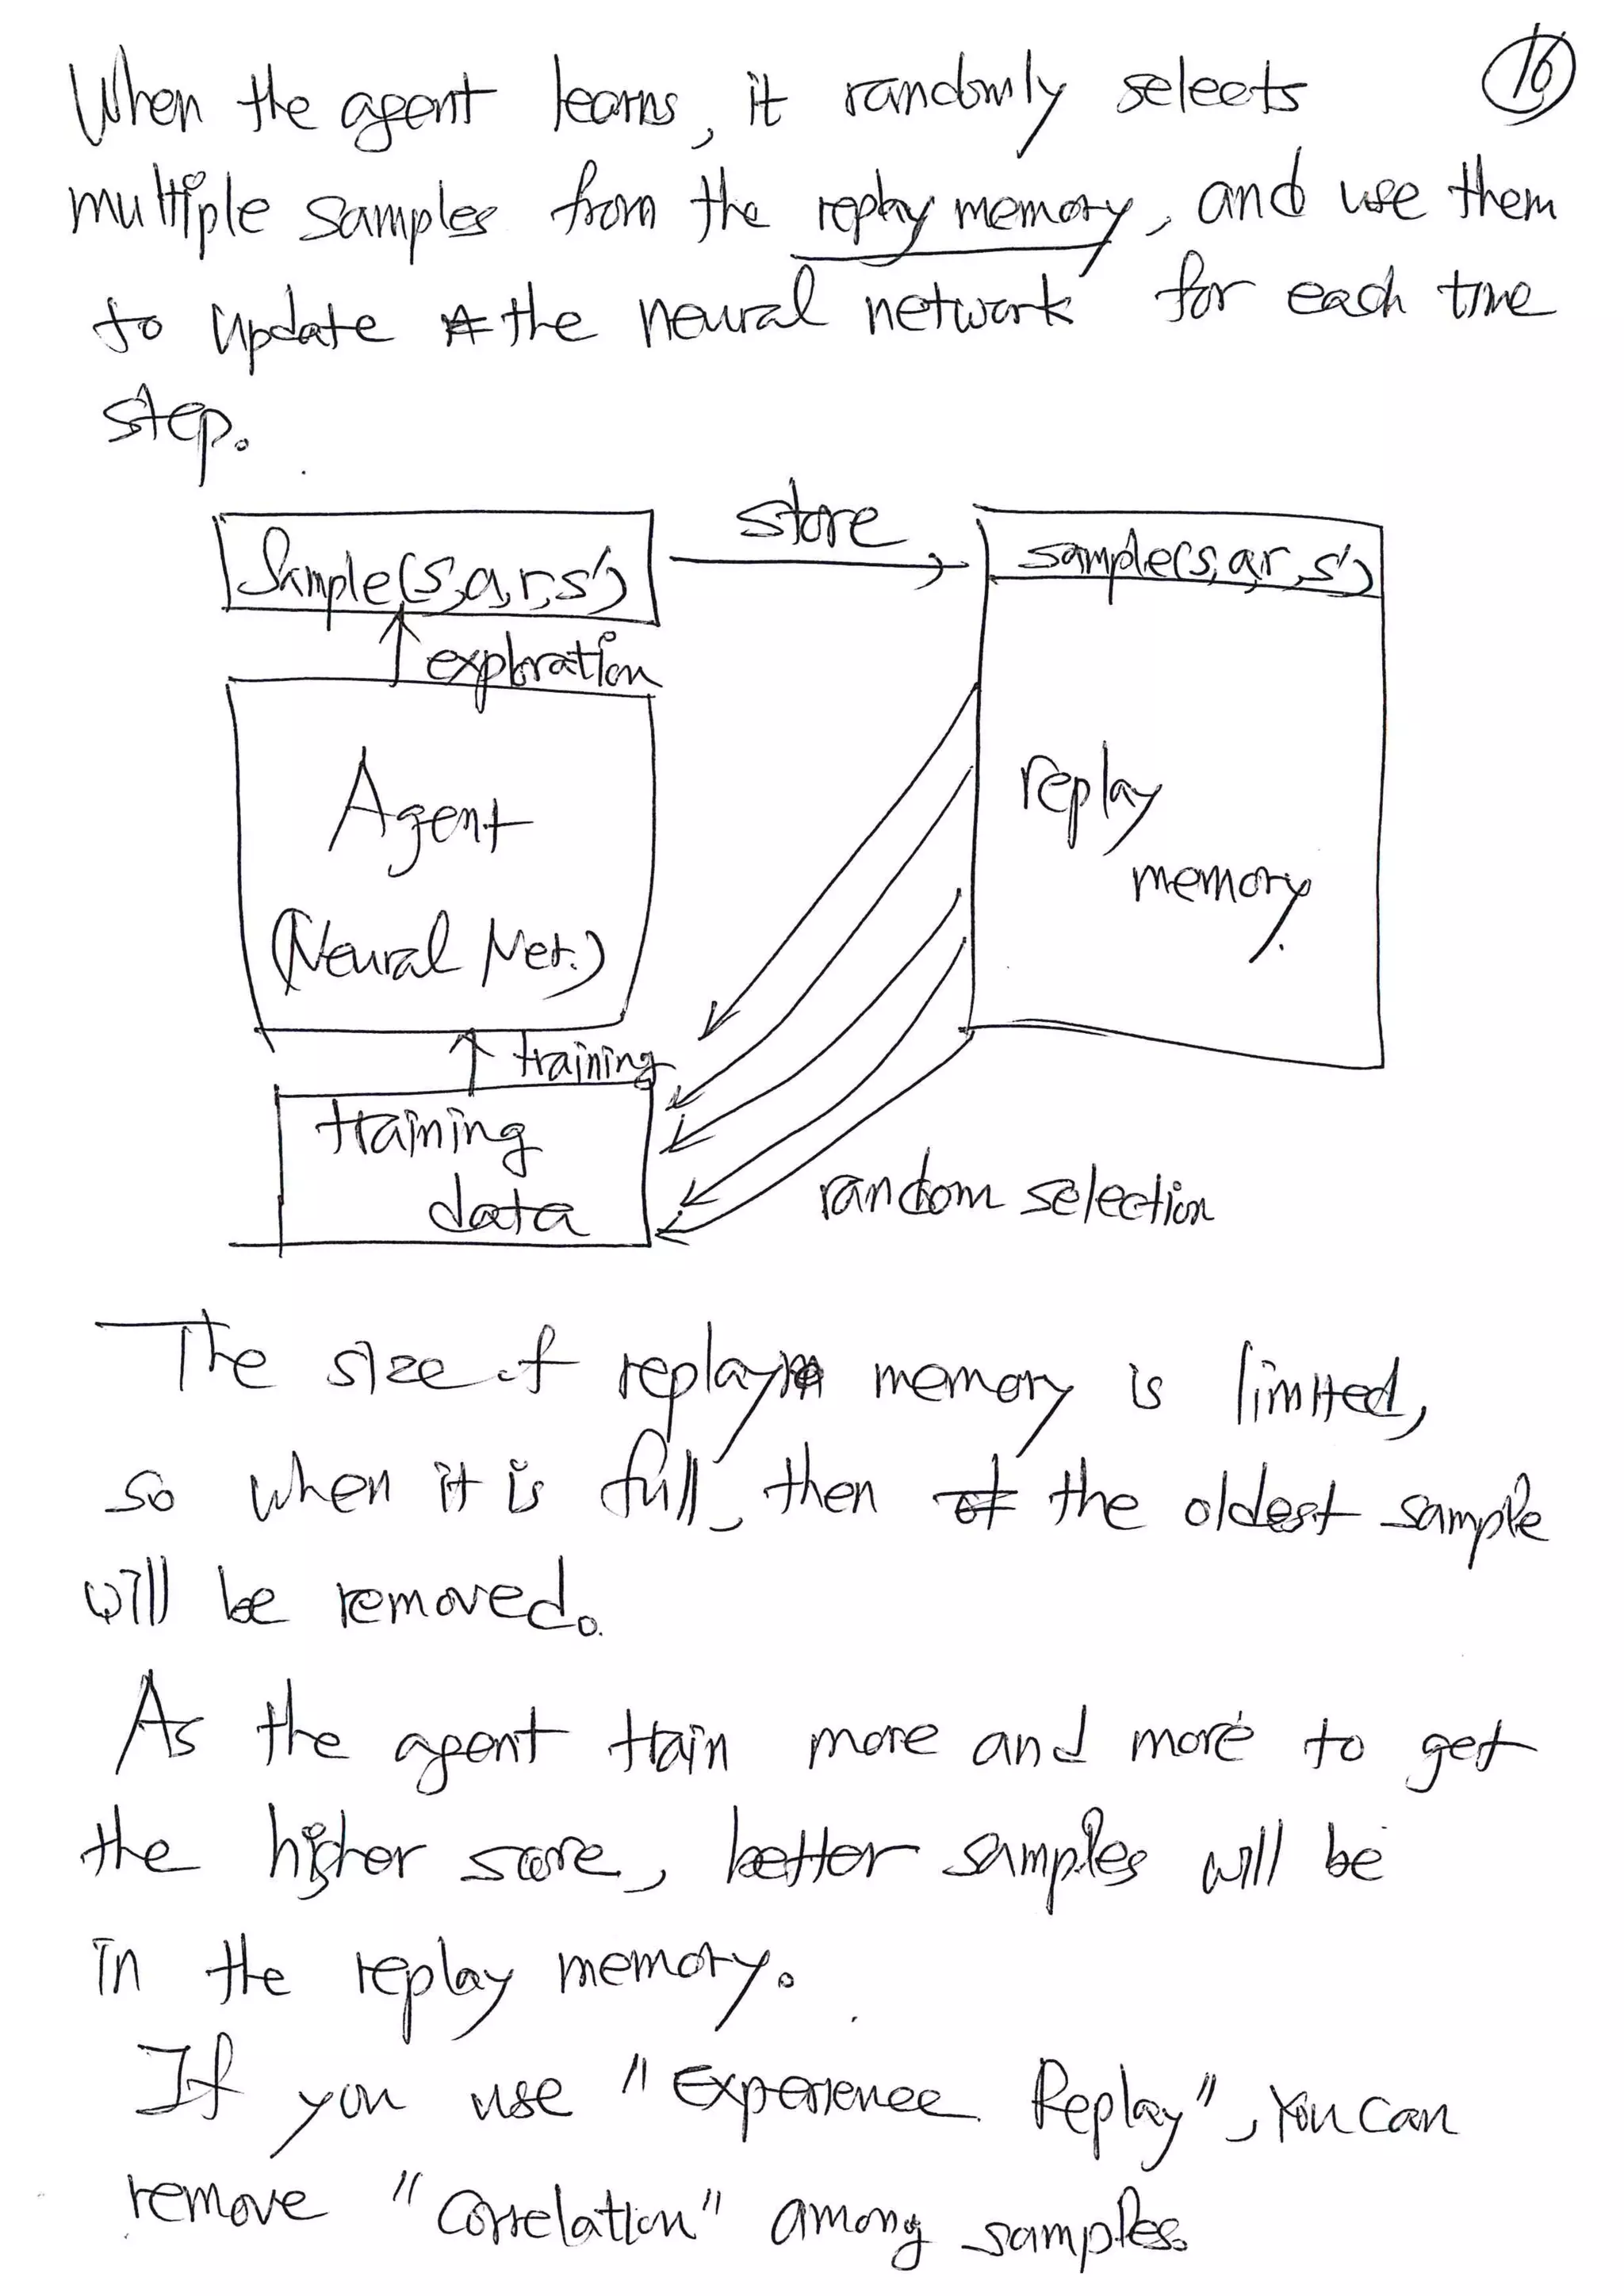 16
When the agent learns, it randomly selects
multiple samples from the replay memory, and use them
to update the neural network for each time
step.
store
Sample(s,a,r,s')
sample(s,a,r,s')
exploration
Agent
(Neural Net.)
replay
memory.
training
training
data
random selection
The size of replay memory is limited,
so when it is full, then the oldest sample
will be removed.
As the agent train more and more to get
the higher score, better samples will be
in the replay memory.
If you use "Experience Replay", you can
remove "Correlation" among samples.